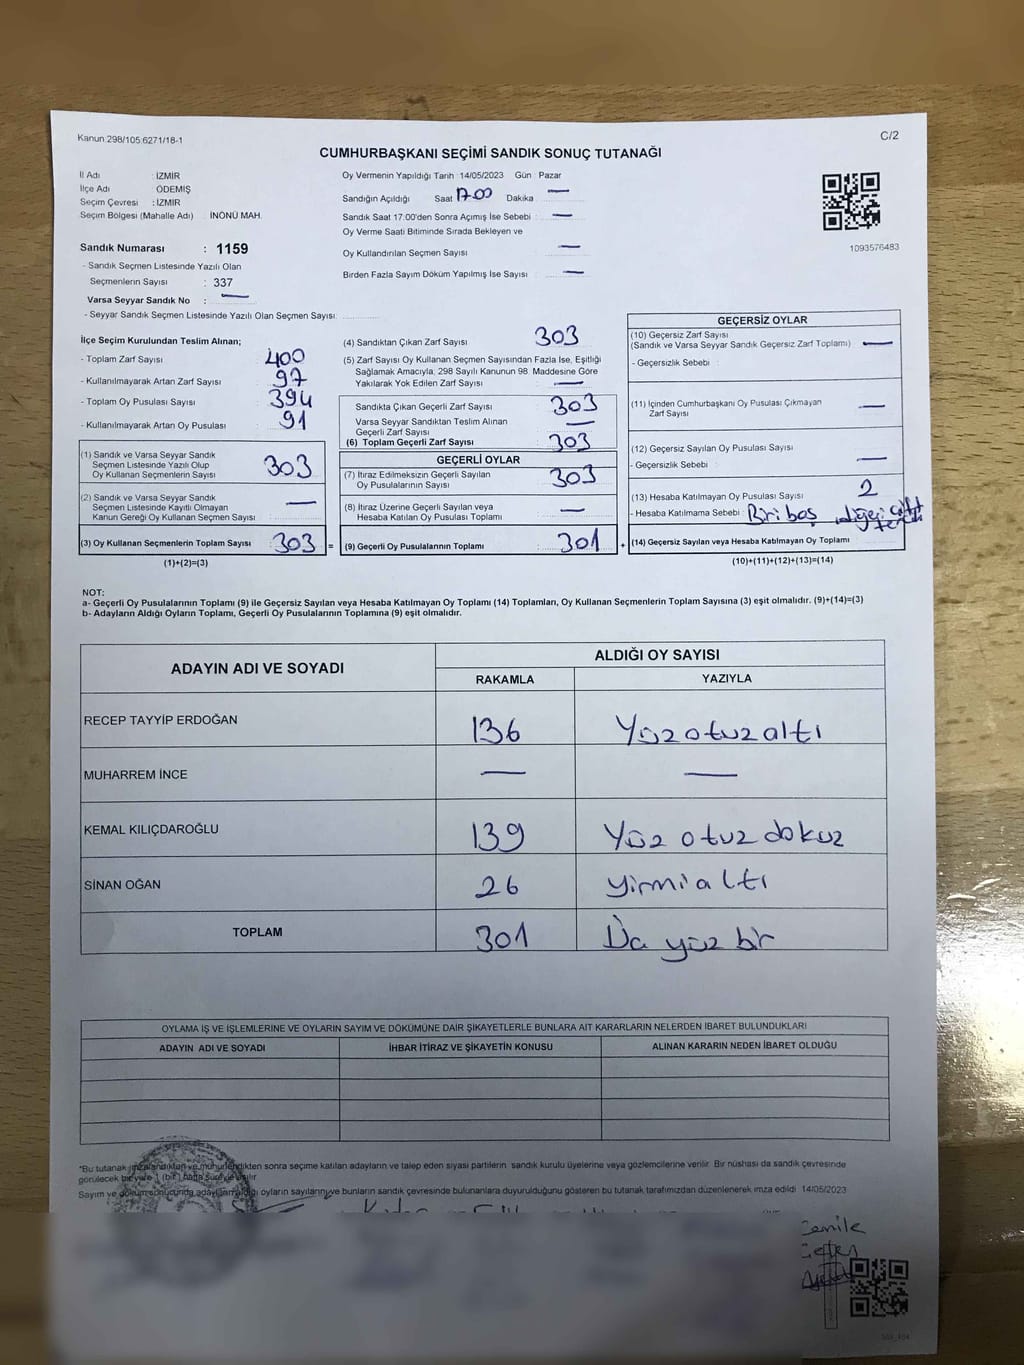 Kanun:298/105:6271/18-1
C/2
CUMHURBAŞKANI SEÇİMİ SANDIK SONUÇ TUTANAĞI
İl Adı : İZMİR
İlçe Adı : ÖDEMİŞ
Seçim Çevresi : İZMİR
Seçim Bölgesi (Mahalle Adı) : İNÖNÜ MAH.
Sandık Numarası : 1159
- Sandık Seçmen Listesinde Yazılı Olan
Seçmenlerin Sayısı : 337
Varsa Seyyar Sandık No : —
- Seyyar Sandık Seçmen Listesinde Yazılı Olan Seçmen Sayısı:
Oy Vermenin Yapıldığı Tarih 14/05/2023 Gün Pazar
Sandığın Açıldığı Saat 17.00 Dakika —
Sandık Saat 17:00'den Sonra Açımış İse Sebebi —
Oy Verme Saati Bitiminde Sırada Bekleyen ve
Oy Kullandırılan Seçmen Sayısı —
Birden Fazla Sayım Döküm Yapılmış İse Sayısı —
1093576483
İlçe Seçim Kurulundan Teslim Alınan;
- Toplam Zarf Sayısı 400
- Kullanılmayarak Artan Zarf Sayısı 97
- Toplam Oy Pusulası Sayısı 394
- Kullanılmayarak Artan Oy Pusulası 91
(1) Sandık ve Varsa Seyyar Sandık
Seçmen Listesinde Yazılı Olup
Oy Kullanan Seçmenlerin Sayısı 303
(2) Sandık ve Varsa Seyyar Sandık
Seçmen Listesinde Kayıtlı Olmayan
Kanun Gereği Oy Kullanan Seçmen Sayısı —
(3) Oy Kullanan Seçmenlerin Toplam Sayısı 303 =
(1)+(2)=(3)
(4) Sandıktan Çıkan Zarf Sayısı 303
(5) Zarf Sayısı Oy Kullanan Seçmen Sayısından Fazla İse, Eşitliği
Sağlamak Amacıyla; 298 Sayılı Kanunun 98. Maddesine Göre
Yakılarak Yok Edilen Zarf Sayısı —
Sandıkta Çıkan Geçerli Zarf Sayısı 303
Varsa Seyyar Sandıktan Teslim Alınan
Geçerli Zarf Sayısı —
(6) Toplam Geçerli Zarf Sayısı 303
GEÇERLİ OYLAR
(7) İtiraz Edilmeksizin Geçerli Sayılan
Oy Pusulalarının Sayısı 303
(8) İtiraz Üzerine Geçerli Sayılan veya
Hesaba Katılan Oy Pusulası Toplamı —
(9) Geçerli Oy Pusulalarının Toplamı 301 +
GEÇERSİZ OYLAR
(10) Geçersiz Zarf Sayısı
(Sandık ve Varsa Seyyar Sandık Geçersiz Zarf Toplamı) —
- Geçersizlik Sebebi :
(11) İçinden Cumhurbaşkanı Oy Pusulası Çıkmayan
Zarf Sayısı —
(12) Geçersiz Sayılan Oy Pusulası Sayısı —
- Geçersizlik Sebebi :
(13) Hesaba Katılmayan Oy Pusulası Sayısı 2
- Hesaba Katılmama Sebebi : Biri boş diğeri çift
(14) Geçersiz Sayılan veya Hesaba Katılmayan Oy Toplamı
(10)+(11)+(12)+(13)=(14)
NOT:
a- Geçerli Oy Pusulalarının Toplamı (9) ile Geçersiz Sayılan veya Hesaba Katılmayan Oy Toplamı (14) Toplamları, Oy Kullanan Seçmenlerin Toplam Sayısına (3) eşit olmalıdır. (9)+(14)=(3)
b- Adayların Aldığı Oyların Toplamı, Geçerli Oy Pusulalarının Toplamına (9) eşit olmalıdır.
ADAYIN ADI VE SOYADI
ALDIĞI OY SAYISI
RAKAMLA YAZIYLA
RECEP TAYYİP ERDOĞAN 136 Yüz otuz altı
MUHARREM İNCE — —
KEMAL KILIÇDAROĞLU 139 Yüz otuz dokuz
SİNAN OĞAN 26 yirmi altı
TOPLAM 301 Üç yüz bir
OYLAMA İŞ VE İŞLEMLERİNE VE OYLARIN SAYIM VE DÖKÜMÜNE DAİR ŞİKAYETLERLE BUNLARA AİT KARARLARIN NELERDEN İBARET BULUNDUKLARI
ADAYIN ADI VE SOYADI İHBAR İTİRAZ VE ŞİKAYETİN KONUSU ALINAN KARARIN NEDEN İBARET OLDUĞU
"Bu tutanak imzalandıktan ve mühürlendikten sonra seçime katılan adayların ve talep eden siyasi partilerin sandık kurulu üyelerine veya gözlemcilerine verilir. Bir nüshası da sandık çevresinde
görülecek bir yere 1 (bir) hafta süreyle asılır
Sayım ve döküm sonucunda adayların aldığı oyların sayılarını ve bunların sandık çevresinde bulunanlara duyurulduğunu gösteren bu tutanak tarafımızdan düzenlenerek imza edildi 14/05/2023
Cemile